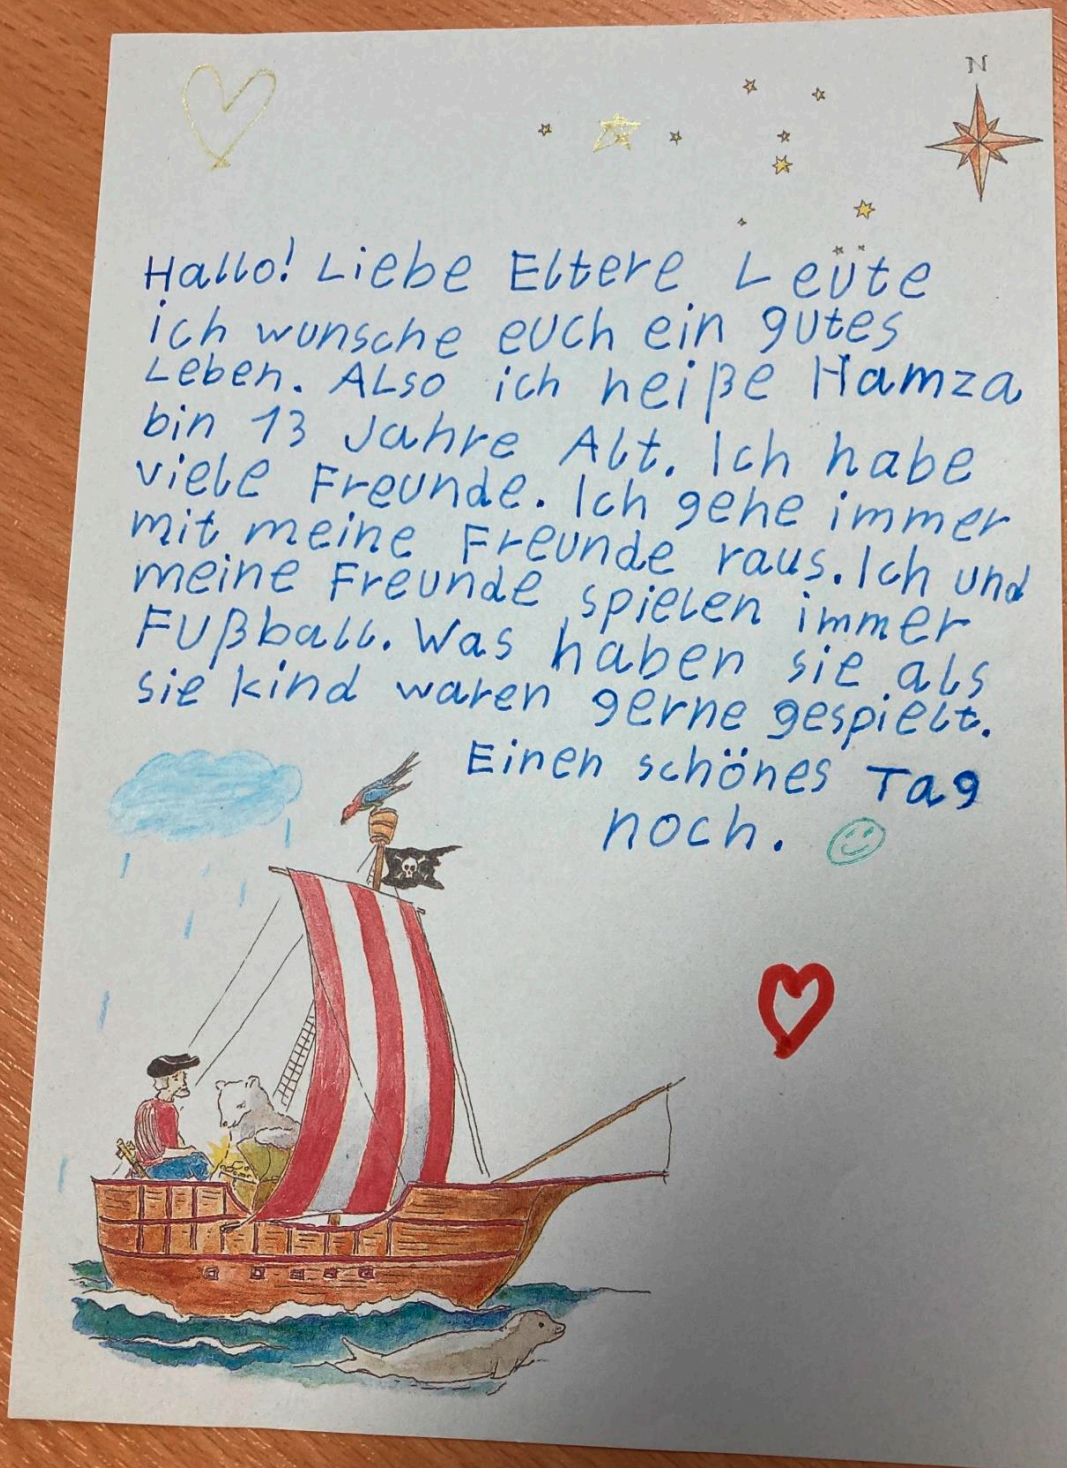 N
Hallo! Liebe Eltere Leüte
ich wunsche euch ein gutes
Leben. Also ich heiße Hamza
bin 13 Jahre Alt. Ich habe
viele Freunde. Ich gehe immer
mit meine Freunde raus. Ich und
meine Freunde spielen immer
Fußball. Was haben sie als
sie kind waren gerne gespielt.
Einen schönes Tag
noch.